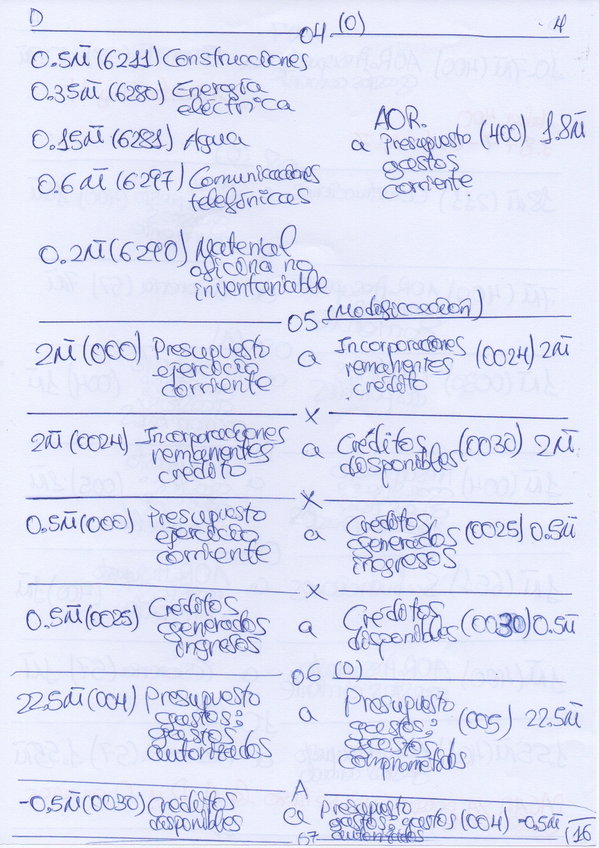 D 04 (O) 4
0.5M (6211) Construcciones
0.35M (6280) Energía
eléctrica
0.15M (6281) Agua
AOR.
a Presupuesto (400) 1.8M
gastos
corriente
0.6M (6297) Comunicaciones
telefónicas
0.2M (6290) Material
oficina no
inventariable
05 (Modificación)
2M (000) Presupuesto
ejercicio
corriente
a Incorporaciones
remanentes (0024) 2M
crédito
X
2M (0024) Incorporaciones
remanentes
crédito
a Créditos (0030) 2M
disponibles
X
0.5M (000) Presupuesto
ejercicio
corriente
a Créditos
generados (0025) 0.5M
ingresos
X
0.5M (0025) Créditos
generados
ingresos
a Créditos
disponibles (0030) 0.5M
06 (D)
22.5M (004) Presupuesto
gastos;
gastos
autorizados
a Presupuesto
gastos; (005) 22.5M
gastos
comprometidos
A
-0.5M (0030) Créditos
disponibles
a Presupuesto
gastos; gastos (004) -0.5M
autorizados
07 (16